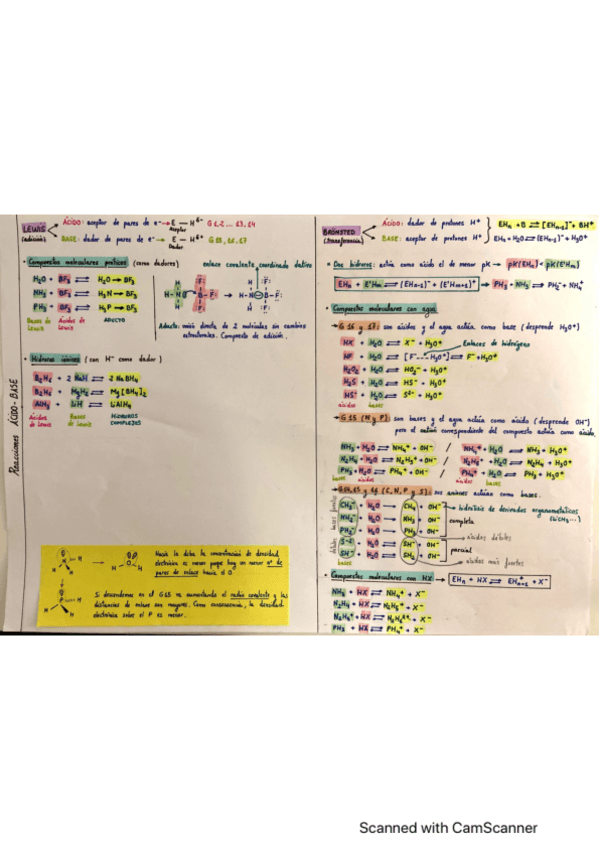 Reacciones ÁCIDO-BASE
LEWIS (adición)
ÁCIDO: aceptor de pares de e⁻ → E — H^δ⁻ G 1, 2 ... 13, 14
Aceptor
BASE: dador de pares de e⁻ → E — H^δ⁺ G 15, 16, 17
Dador
· Compuestos moleculares próticos (como dadores)
H₂O + BF₃ ⇌ H₂O→BF₃
NH₃ + BF₃ ⇌ H₃N→BF₃
PH₃ + BF₃ ⇌ H₃P→BF₃
Bases de Lewis
Ácidos de Lewis
ADUCTO
enlace covalente coordinado dativo
Aducto: unión directa de 2 moléculas sin cambios
estructurales. Compuesto de adición.
· Hidruros iónicos (con H⁻ como dador)
B₂H₆ + 2 NaH ⇌ 2 NaBH₄
B₂H₆ + MgH₂ ⇌ Mg[BH₄]₂
AlH₃ + LiH ⇌ LiAlH₄
Ácidos de Lewis
Bases de Lewis
HIDRUROS COMPLEJOS
Hacia la dcha la concentración de densidad
electrónica es menor porque hay un menor nº de
pares de enlace hacia el O
Si descendemos en el G15 va aumentando el radio covalente y las
distancias de enlace son mayores. Como consecuencia, la densidad
electrónica sobre el P es menor.
BRÖNSTED (transferencia)
ÁCIDO: dador de protones H⁺
BASE: aceptor de protones H⁺
EHₙ + B ⇌ [EHₙ₋₁]⁻ + BH⁺
EHₙ + H₂O ⇌ (EHₙ₋₁)⁻ + H₃O⁺
· Dos hidruros: actúa como ácido el de menor pK → pK(EHₙ) < pK(E'Hₘ)
EHₙ + E'Hₘ ⇌ (EHₙ₋₁)⁻ + (E'Hₘ₊₁)⁺ → PH₃ + NH₃ ⇌ PH₂⁻ + NH₄⁺
· Compuestos moleculares con agua
→ G 16 y 17: son ácidos y el agua actúa como base (desprende H₃O⁺)
HX + H₂O ⇌ X⁻ + H₃O⁺
Enlaces de hidrógeno
HF + H₂O ⇌ [F⁻---H₃O⁺] ⇌ F⁻ + H₃O⁺
H₂O₂ + H₂O ⇌ HO₂⁻ + H₃O⁺
H₂S + H₂O ⇌ HS⁻ + H₃O⁺
HS⁻ + H₂O ⇌ S²⁻ + H₃O⁺
ácidos bases
→ G 15 (N y P): son bases y el agua actúa como ácido (desprende OH⁻)
pero el catión correspondiente del compuesto actúa como ácido.
NH₃ + H₂O ⇌ NH₄⁺ + OH⁻ / NH₄⁺ + H₂O ⇌ NH₃ + H₃O⁺
N₂H₄ + H₂O ⇌ N₂H₅⁺ + OH⁻ / N₂H₅⁺ + H₂O ⇌ N₂H₄ + H₃O⁺
PH₃ + H₂O ⇌ PH₄⁺ + OH⁻ / PH₄⁺ + H₂O ⇌ PH₃ + H₃O⁺
bases ácidos ácidos bases
→ G14, 15 y 16 (C, N, P y S): sus aniones actúan como bases.
bases fuertes
CH₃⁻ + H₂O → CH₄ + OH⁻ → hidrólisis de derivados organometálicos
(LiCH₃...)
NH₂⁻ + H₂O → NH₃ + OH⁻
completa
PH₂⁻ + H₂O → PH₃ + OH⁻
ácidos débiles
débiles
S²⁻ + H₂O ⇌ SH⁻ + OH⁻
parcial
SH⁻ + H₂O ⇌ SH₂ + OH⁻
bases
ácidos más fuertes
· Compuestos moleculares con HX → EHₙ + HX ⇌ EH⁺ₙ₊₁ + X⁻
NH₃ + HX ⇌ NH₄⁺ + X⁻
N₂H₄ + HX ⇌ N₂H₅⁺ + X⁻
PH₃ + HX ⇌ PH₄⁺ + X⁻
Scanned with CamScanner